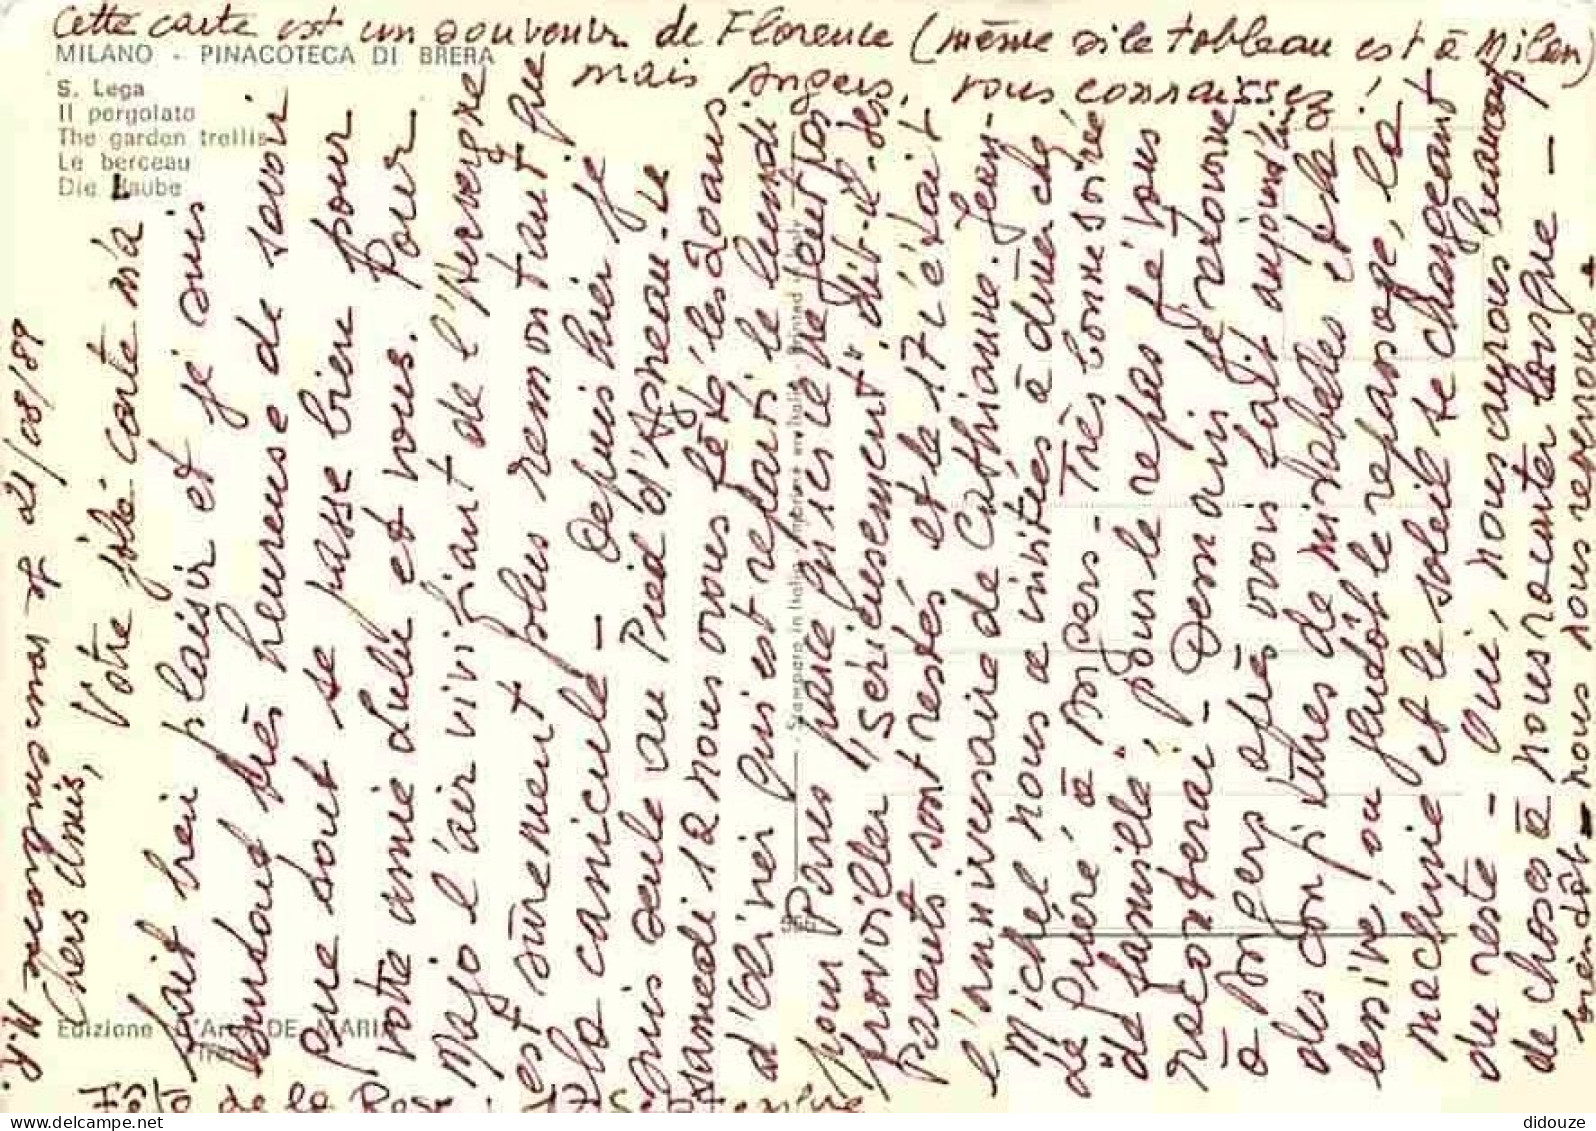 Cette carte est un souvenir de Florence (même si le tableau est à Milan)
mais Angers, vous connaissez !
MILANO - PINACOTECA DI BRERA
S. Lega
Il pergolato
The garden trellis
Le berceau
Die Laube
21/08/89
Chers Amis, Votre jolie carte m'a
fait bien plaisir et je suis
surtout très heureuse de savoir
que tout se passe bien pour
votre amie Lulu et vous. Pour
Majo l'air vivifiant de l'Auvergne
est sûrement plus remontant que
la canicule - Depuis hier je
suis seule au Pied d'Agneau. Le
samedi 12 nous avons fêté les 20 ans
d'Olivier qui est reparti le lundi
pour Paris parce qu'ici il ne peut pas
travailler "sérieusement" dit-il - Ses
parents sont restés et le 17 c'était
l'anniversaire de Cathianne. Jean-
Michel nous a invités à dîner
à Angers - Très bonne soirée
de famille, pour le repas je vous
raconterai - Demain je retourne
à Angers après avoir fait aujourd'hui
des confitures de mirabelles et la
lessive, ou plutôt le repassage, la
machine et le soleil se chargeant
du reste - Oui, nous aurons beaucoup
de choses à nous raconter lorsque -
bientôt - nous nous reverrons -
Edizione D'Arte DE MARIA
Stampato in Italia - Imprimé en Italie - Printed in Italy
Fête de la Rose : 17 Septembre
didouze